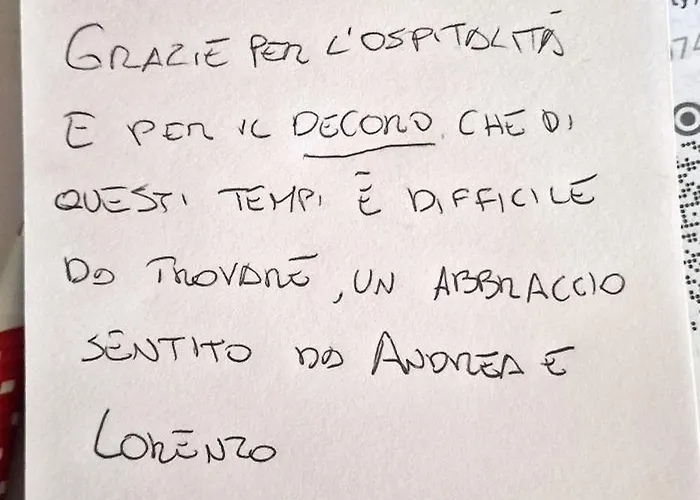 GRAZIE PER L'OSPITALITÀ
E PER IL DECORO CHE DI
QUESTI TEMPI È DIFFICILE
DA TROVARE, UN ABBRACCIO
SENTITO DA ANDREA E
LORENZO